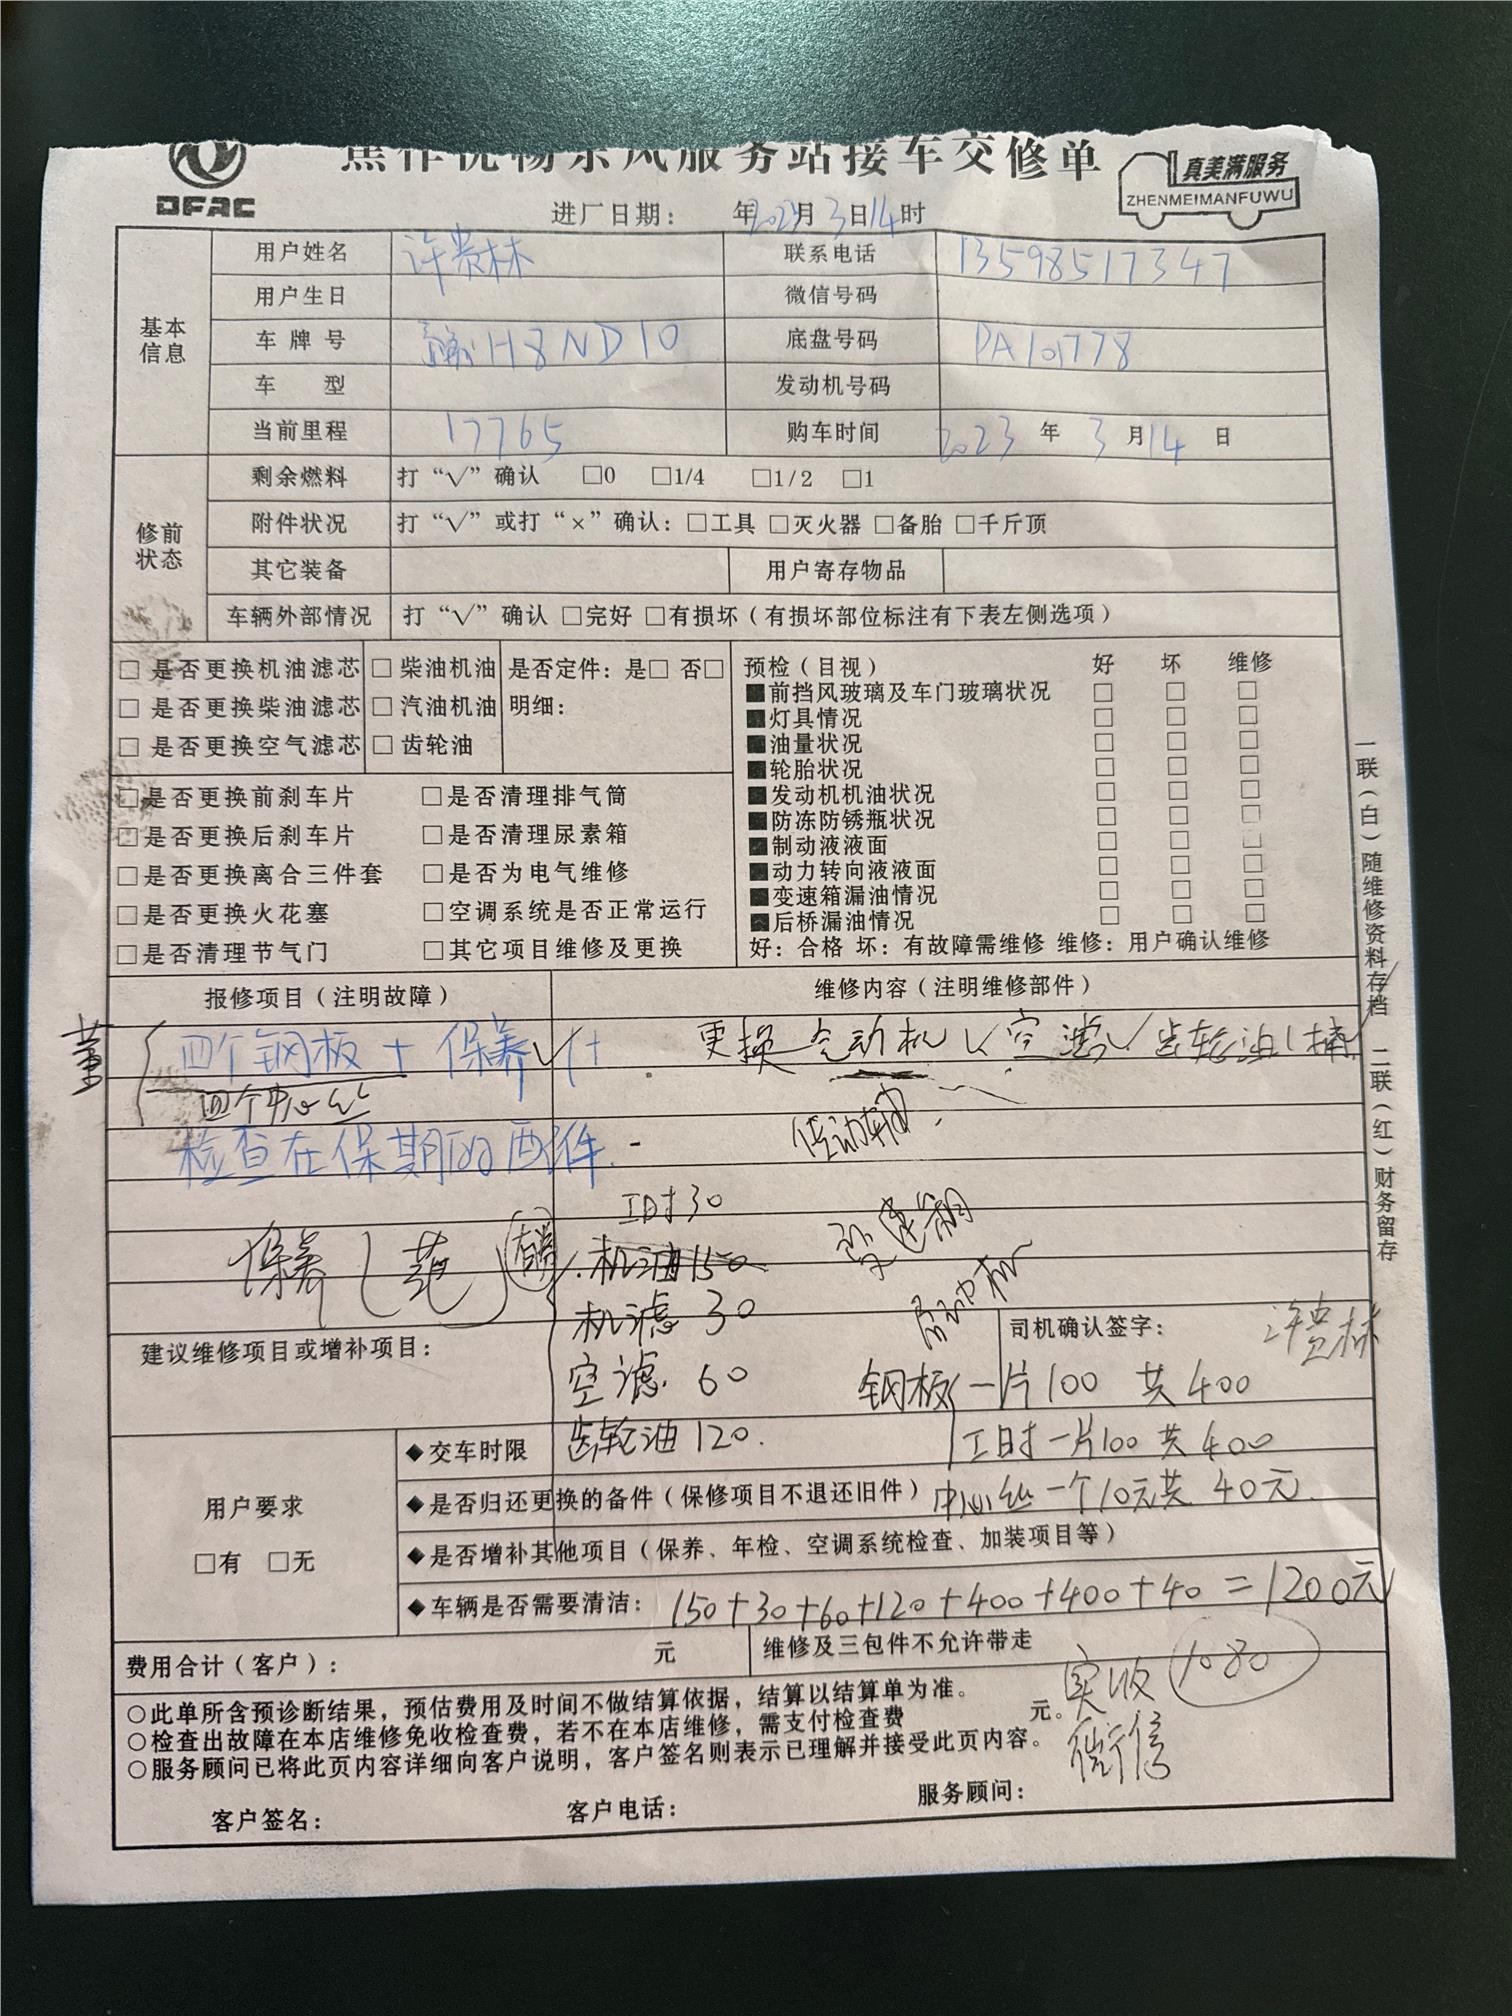 东风服务站接车交修单
DFAC
真美满服务
ZHENMEIMANFUWU
进厂日期： 年 月 3 日 14 时
基本信息
用户姓名 许贵林 联系电话 13598517347
用户生日 微信号码
车牌号 豫H8ND10 底盘号码 PA101778
车 型 发动机号码
当前里程 17765 购车时间 2023 年 3 月 14 日
修前状态
剩余燃料 打“√”确认 □0 □1/4 □1/2 □1
附件状况 打“√”或打“×”确认：□工具 □灭火器 □备胎 □千斤顶
其它装备 用户寄存物品
车辆外部情况 打“√”确认 □完好 □有损坏（有损坏部位标注有下表左侧选项）
□ 是否更换机油滤芯 □ 柴油机油 是否定件：是□ 否□
□ 是否更换柴油滤芯 □ 汽油机油 明细：
□ 是否更换空气滤芯 □ 齿轮油
□是否更换前刹车片 □是否清理排气筒
□是否更换后刹车片 □是否清理尿素箱
□是否更换离合三件套 □是否为电气维修
□是否更换火花塞 □空调系统是否正常运行
□是否清理节气门 □其它项目维修及更换
预检（目视） 好 坏 维修
■前挡风玻璃及车门玻璃状况 □ □ □
■灯具情况 □ □ □
■油量状况 □ □ □
■轮胎状况 □ □ □
■发动机机油状况 □ □ □
■防冻防锈瓶状况 □ □ □
■制动液液面 □ □ □
■动力转向液液面 □ □ □
■变速箱漏油情况 □ □ □
■后桥漏油情况 □ □ □
好：合格 坏：有故障需维修 维修：用户确认维修
一联（白）随维修资料存档 二联（红）财务留存
报修项目（注明故障） 维修内容（注明维修部件）
董
四个钢板 + 保养
更换 动机 空滤 齿轮油1桶
四个中心丝
传动轴
检查在保期的配件.
工时30
保养
机油150
变速箱
机滤 30
空滤 60
齿轮油 120.
建议维修项目或增补项目：
司机确认签字： 许贵林
钢板 一片100 共400
工时一片100 共400
中心丝一个10元共 40元.
用户要求
□有 □无
◆交车时限
◆是否归还更换的备件（保修项目不退还旧件）
◆是否增补其他项目（保养、年检、空调系统检查、加装项目等）
◆车辆是否需要清洁： 150+30+60+120+400+400+40=1200元
费用合计（客户）： 元 维修及三包件不允许带走
实收 1080
微信
○此单所含预诊断结果，预估费用及时间不做结算依据，结算以结算单为准。
○检查出故障在本店维修免收检查费，若不在本店维修，需支付检查费 元。
○服务顾问已将此页内容详细向客户说明，客户签名则表示已理解并接受此页内容。
客户签名： 客户电话： 服务顾问：